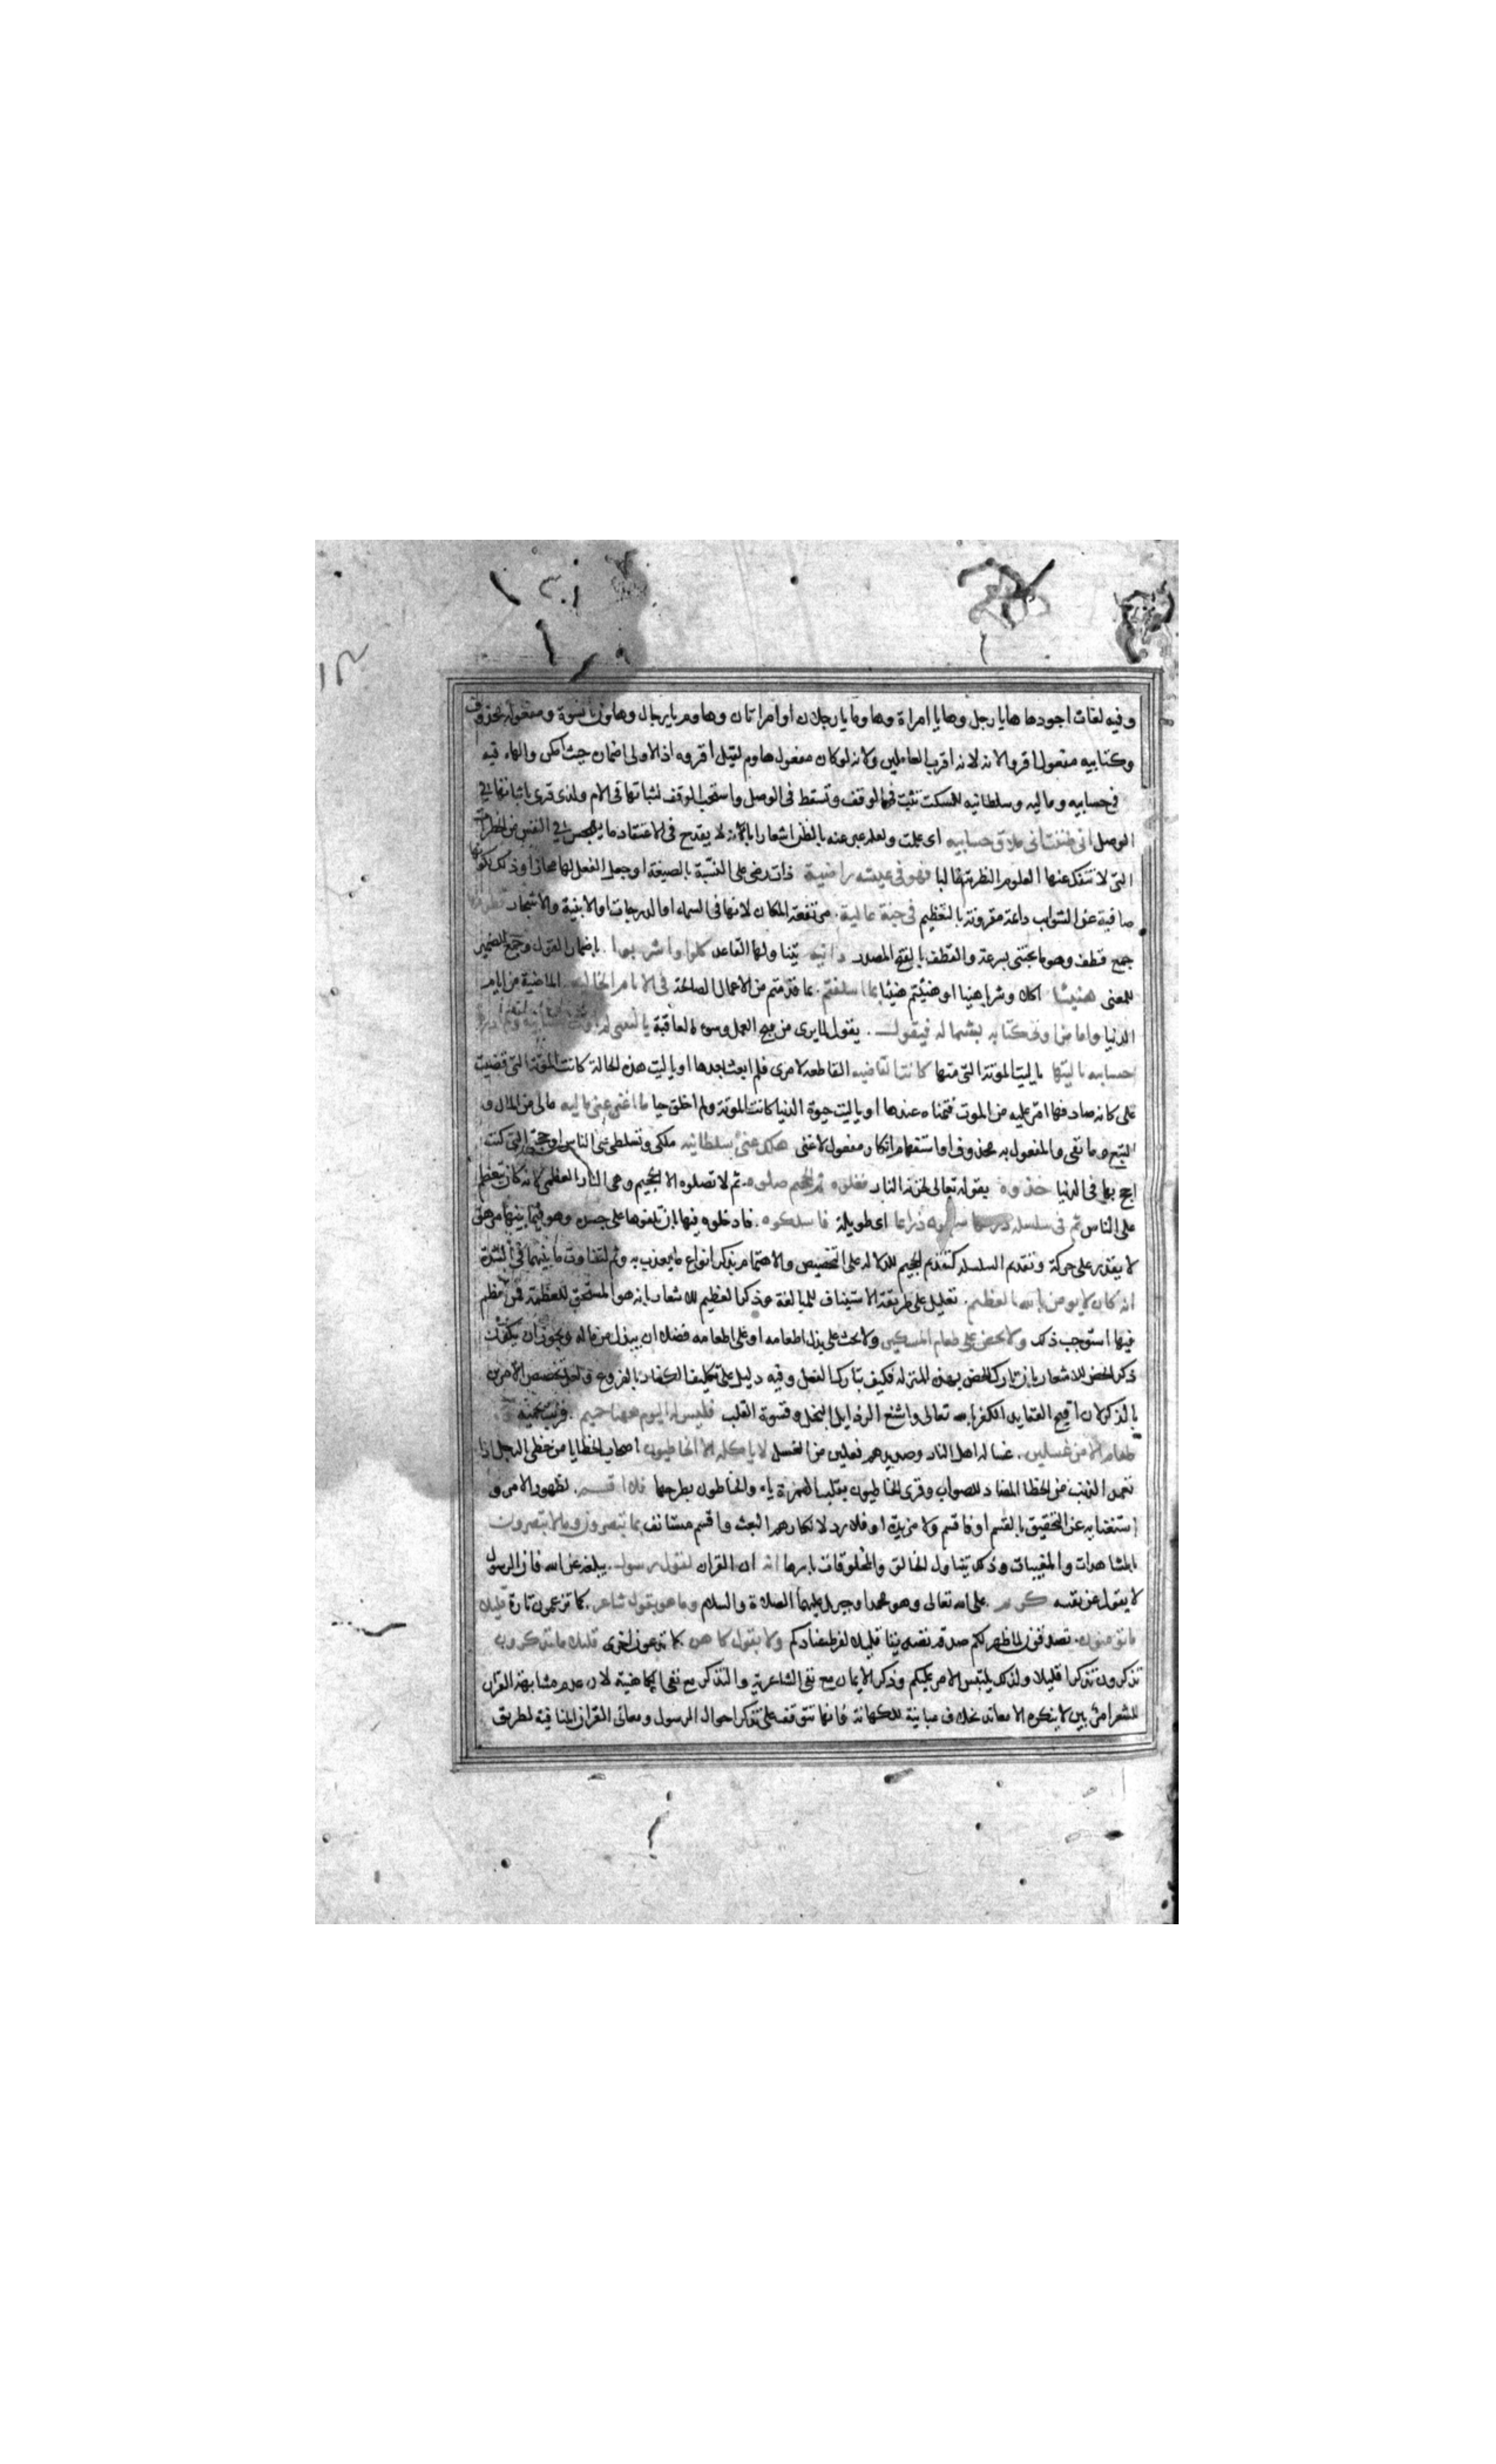 وفيه لغات اجودها هايا رجل وهايا امراة وهاوما يا رجلان او امراتان وهاوم يا رجال وهاون يا نسوة ومفعوله محذوف
وكتابيه مفعول اقرؤا لانه لانه اقرب العاملين ولانه لو كان مفعول هاوم لقيل اقروه اذ الاولى اضمان حيث امكن والهاء فيه
في حسابيه وماليه وسلطانيه للسكت تثبت في الوقف وتسقط في الوصل واستحب الوقف لثباتها في الامام ولذي قرئ باثباتها في
الوصل اني ظننت اني ملاق حسابيه اى علمت ولعله عبر عنه بالظن اشعارا بانه لا يقدح في الاعتقاد ما يهجس في النفس من الخطرات
التي لا تنفك عنها العلوم النظرية غالبا فهو في عيشه راضية ذات رضى على النسبة بالصيغة او جعل الفعل لها مجازا وذلك لكونها
صافية عن الشوايب دائمة مقرونة بالتعظيم في جنة عالية. مرتفعة المكان لانها في السماء او الدرجات او الابنية والاشجار قطوفها
جمع قطف وهو ما يجتنى بسرعة والقطف بالفتح المصدر دانيه يتناولها القاعد كلوا واشربوا. باضمار القول وجمع الضمير
للمعنى هنيئا اكلا وشرابا هنيا او هنئتم هنيئا بما اسلفتم. بما قدمتم من الاعمال الصالحة في الايام الخاليه. الماضية من ايام
الدنيا واما من اوتي كتابه بشماله فيقول. يقول لما يرى من قبح العمل وسوء العاقبة يا ليتني لم
حسابيه يا ليتها يا ليت الموتة التي متها كانت القاضيه القاطعة لامرى فلم ابعث بعدها او يا ليت هذه الحالة كانت الموتة التي قضيت
على كانه صادفها امر عليه من الموت فتمناه عندها او يا ليت حيوة الدنيا كانت الموتة ولم اخلق حيا ما اغنى عني ماليه مالي من المال و
التبع وما نفى والمفعول به محذوف او استفهام انكار مفعول لاغنى هلك عني سلطانيه ملكي وتسلطي على الناس او حجتي التي كنت
احج بها في الدنيا خذوه يقوله تعالى لخزنة النار فغلوه ثم الجحيم صلوه. ثم لا تصلوه الا الجحيم وهي النار العظمى لانه كان يتعظم
على الناس ثم في سلسله ذرعها ذراعا اى طويلة فاسلكوه. فادخلوه فيها بان تلفوها على جسده وهو فيما بينها مرهق
لا يقدر على حركة وتقديم السلسله كتقديم الجحيم للدلاله على التخصيص والاهتمام بذكر انواع ما يعذب به وثم لتفاوت ما بينهما في الشدة
انه كان لا يومن بالله العظيم. تعليل على طريقة الاستيناف للمبالغة وذكر العظيم للاشعار بانه هو المستحق للعظمة فمن تعظم
فيها استوجب ذلك ولا يحض على طعام المسكين ولا يحث على بذل طعامه او على اطعامه فضلا ان يبذل من ماله ويجوز ان يكون
ذكر الحض للاشعار بان تارك الحض بهذه المنزله فكيف بتارك الفعل وفيه دليل على تكليف الكفار بالفروع ولعل تخصيص الامرين
بالذكر لان اقبح العقايد الكفر بالله تعالى واشنع الرذايل البخل وقسوة القلب فليس له اليوم ههنا حميم. قريب يحميه ولا
طعام الا من غسلين. غساله اهل النار وصديدهم فعلين من الغسل لا ياكله الا الخاطيون اصحاب الخطايا من خطي الرجل اذا
تعمد الذنب من الخطا المضاد للصواب وقرى الخاطيون بقلب الهمزة ياء والخاطون بطرحها فلا اقسم. لظهور الامر و
استغنايه عن التحقيق بالقسم او فاقسم ولا مزيدة او فلا رد لانكارهم البعث واقسم مستانف بما تبصرون وما لا تبصرون
بالمشاهدات والمغيبات وذلك يتناول الخالق والمخلوقات باسرها انه ان القران لقول رسول. يبلغه عن الله فان الرسول
لا يقول عن نفسه كريم. على الله تعالى وهو محمد او جبريل عليهما الصلاة والسلام وما هو بقول شاعر. كما تزعمون تارة قليلا
ما تومنون. تصدقون لما ظهر لكم صدقه تصديقا قليلا لفرط عنادكم ولا بقول كاهن كما تدعون اخرى قليلا ما تذكرون
تذكرون تذكرا قليلا ولذلك يلتبس الامر عليكم وذكر الايمان مع نفي الشاعرية والتذكر مع نفي الكاهنية لان عدم مشابهة القران
للشعر امر بين لا ينكره الا معاند بخلاف مباينة للكهانة فانها تتوقف على تذكر احوال الرسول ومعاني القران المنافية لطريق